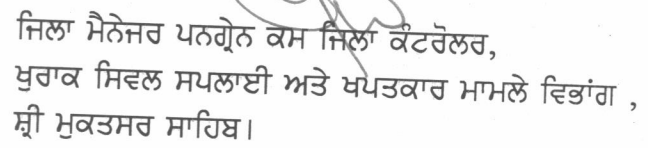 ਜਿਲਾ ਮੈਨੇਜਰ ਪਨਗ੍ਰੇਨ ਕਮ ਜਿਲਾ ਕੰਟਰੋਲਰ,
ਖੁਰਾਕ ਸਿਵਲ ਸਪਲਾਈ ਅਤੇ ਖਪਤਕਾਰ ਮਾਮਲੇ ਵਿਭਾਂਗ ,
ਸ਼੍ਰੀ ਮੁਕਤਸਰ ਸਾਹਿਬ।